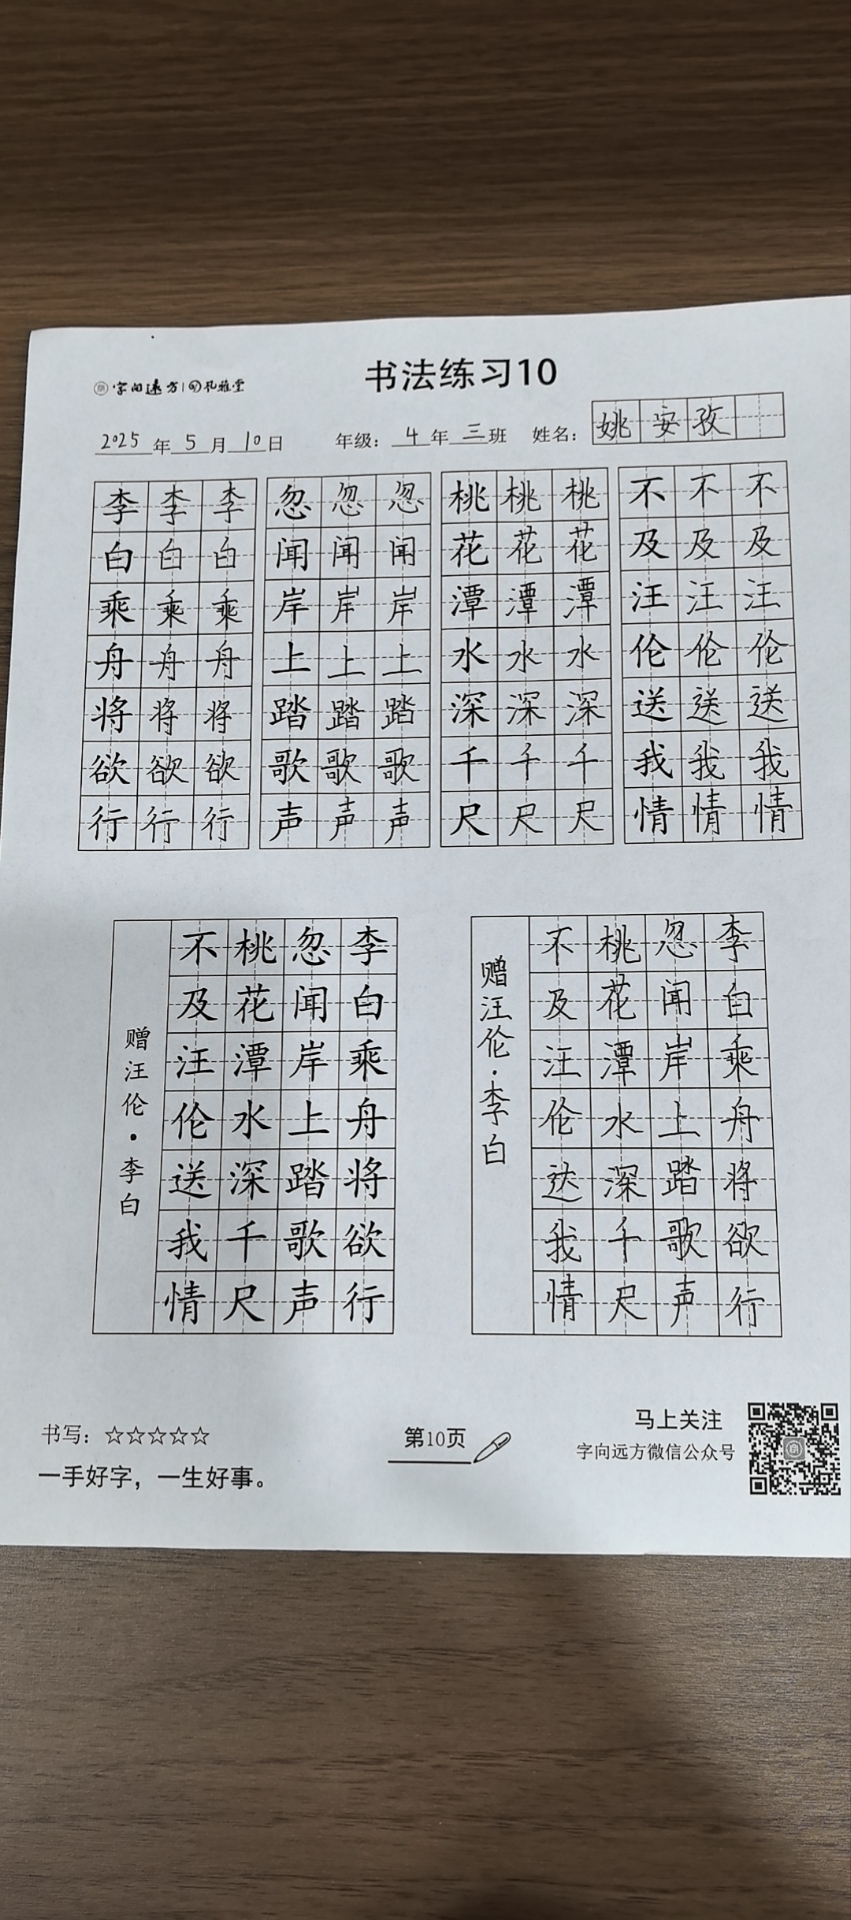 字向远方 孔雅堂
书法练习10
2025年5月10日 年级：4年三班 姓名：姚安孜
李李李 忽忽忽 桃桃桃 不不不
白白白 闻闻闻 花花花 及及及
乘乘乘 岸岸岸 潭潭潭 汪汪汪
舟舟舟 上上上 水水水 伦伦伦
将将将 踏踏踏 深深深 送送送
欲欲欲 歌歌歌 千千千 我我我
行行行 声声声 尺尺尺 情情情
李白乘舟将欲行
忽闻岸上踏歌声
桃花潭水深千尺
不及汪伦送我情
赠汪伦·李白
李白乘舟将欲行
忽闻岸上踏歌声
桃花潭水深千尺
不及汪伦送我情
赠汪伦·李白
书写：☆☆☆☆☆
一手好字，一生好事。
第10页
马上关注
字向远方微信公众号